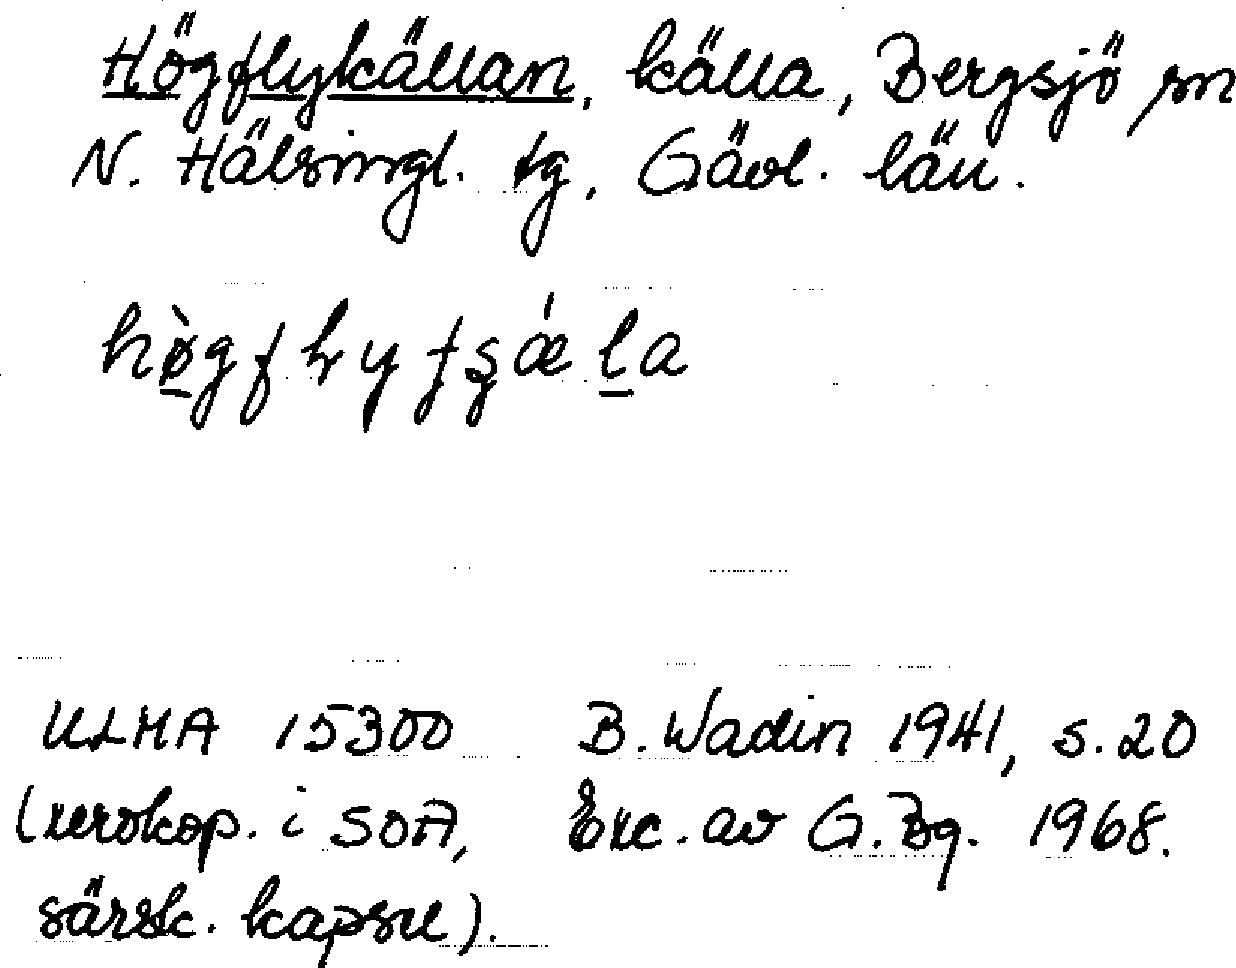 Högflykällan, källa, Bergsjö sn
N. Hälsingl. tg, Gävl. län.
ULMA 15300 B. Wadin 1941, s. 20
(xerokop. i SOA, Exc. av G. Bg. 1968.
särsk. kapsel).